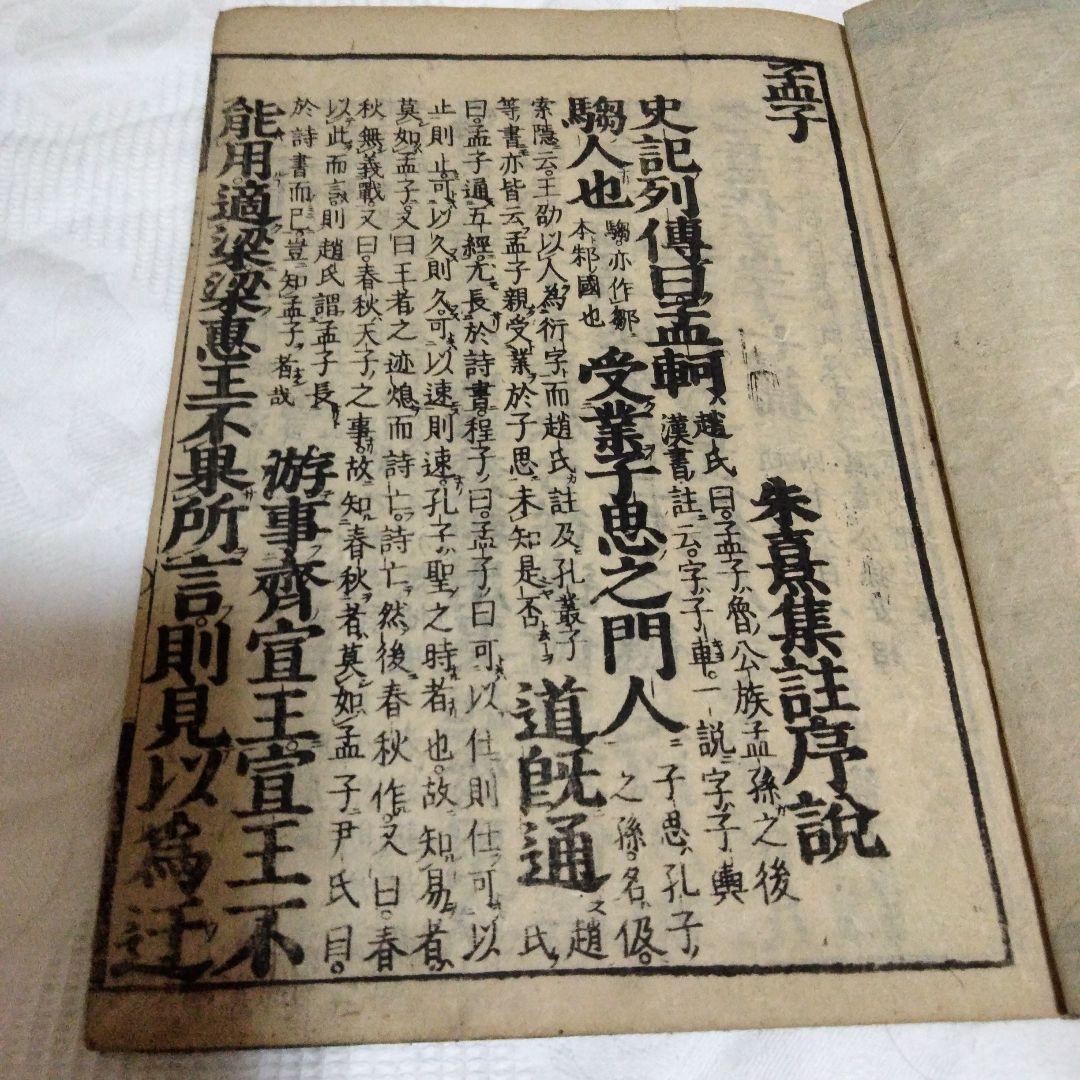 孟子
朱熹集註序說
史記列傳曰孟軻
趙氏曰孟子魯公族孟孫之後
漢書註云字子車一說字子輿
騶人也
騶亦作鄒
本邾國也
受業子思之門人
子思孔子
之孫名伋
索隱云王劭以人為衍字而趙氏註及孔叢子
等書亦皆云孟子親受業於子思未知是否
道既通
趙
氏
曰孟子通五經尤長於詩書程子曰孟子曰可以仕則仕可以
止則止可以久則久可以速則速孔子聖之時者也故知易者
莫如孟子又曰王者之迹熄而詩亡詩亡然後春秋作又曰春
秋無義戰又曰春秋天子之事故知春秋者莫如孟子尹氏曰
以此而言則趙氏謂孟子長
於詩書而已豈知孟子者哉
游事齊宣王宣王不
能用適梁梁惠王不果所言則見以為迂